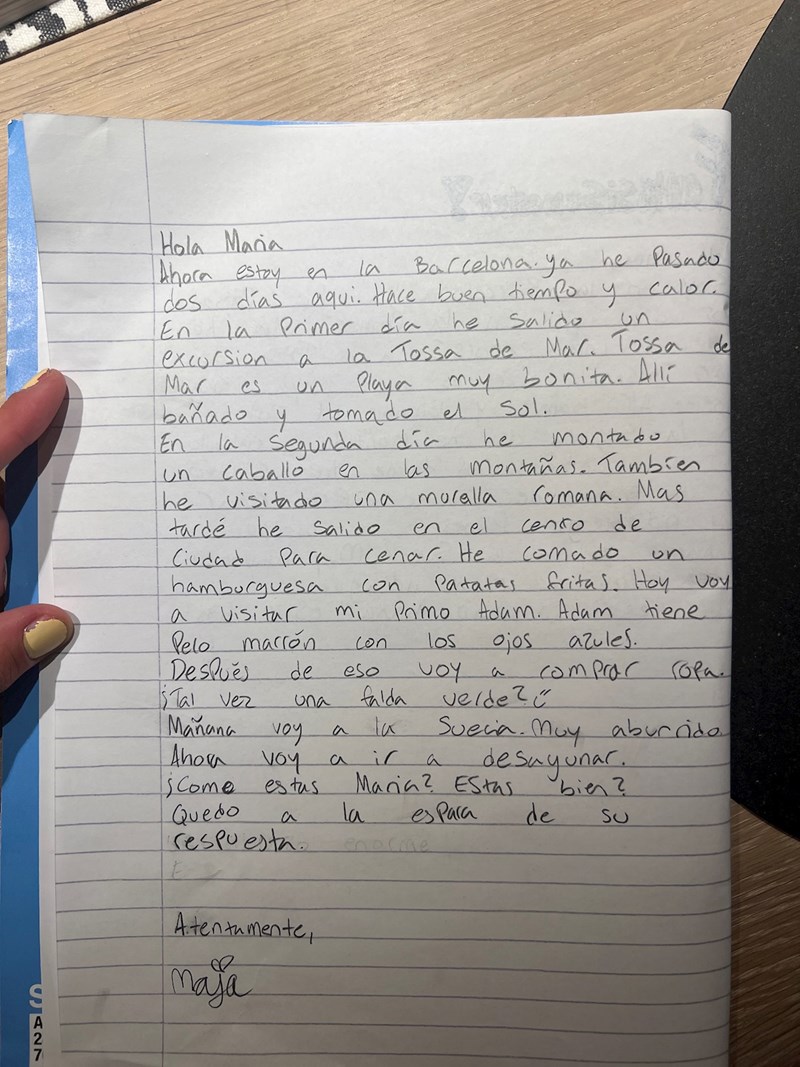 Hola Maria
Ahora estoy en la Barcelona. ya he Pasado
dos días aqui. Hace buen tiempo y calor.
En la Primer día he salido un
excursion a la Tossa de Mar. Tossa de
Mar es un Playa muy bonita. Allí
bañado y tomado el sol.
En la segunda día he montado
un caballo en las montañas. Tambien
he visitado una moralla romana. Mas
tardé he salido en el cenro de
Ciudad Para cenar. He comado un
hamburguesa con Patatas fritas. Hoy voy
a visitar mi Primo Adam. Adam tiene
Pelo marrón con los ojos azules.
Después de eso voy a comprar ropa.
¡Tal vez una falda verde?
Mañana voy a la Suecia. Muy aburrido.
Ahora voy a ir a desayunar.
¡Come estas Maria? Estas bien?
Quedo a la espara de su
respuesta. enorme
Atentamente,
Maja
S
A
2
7